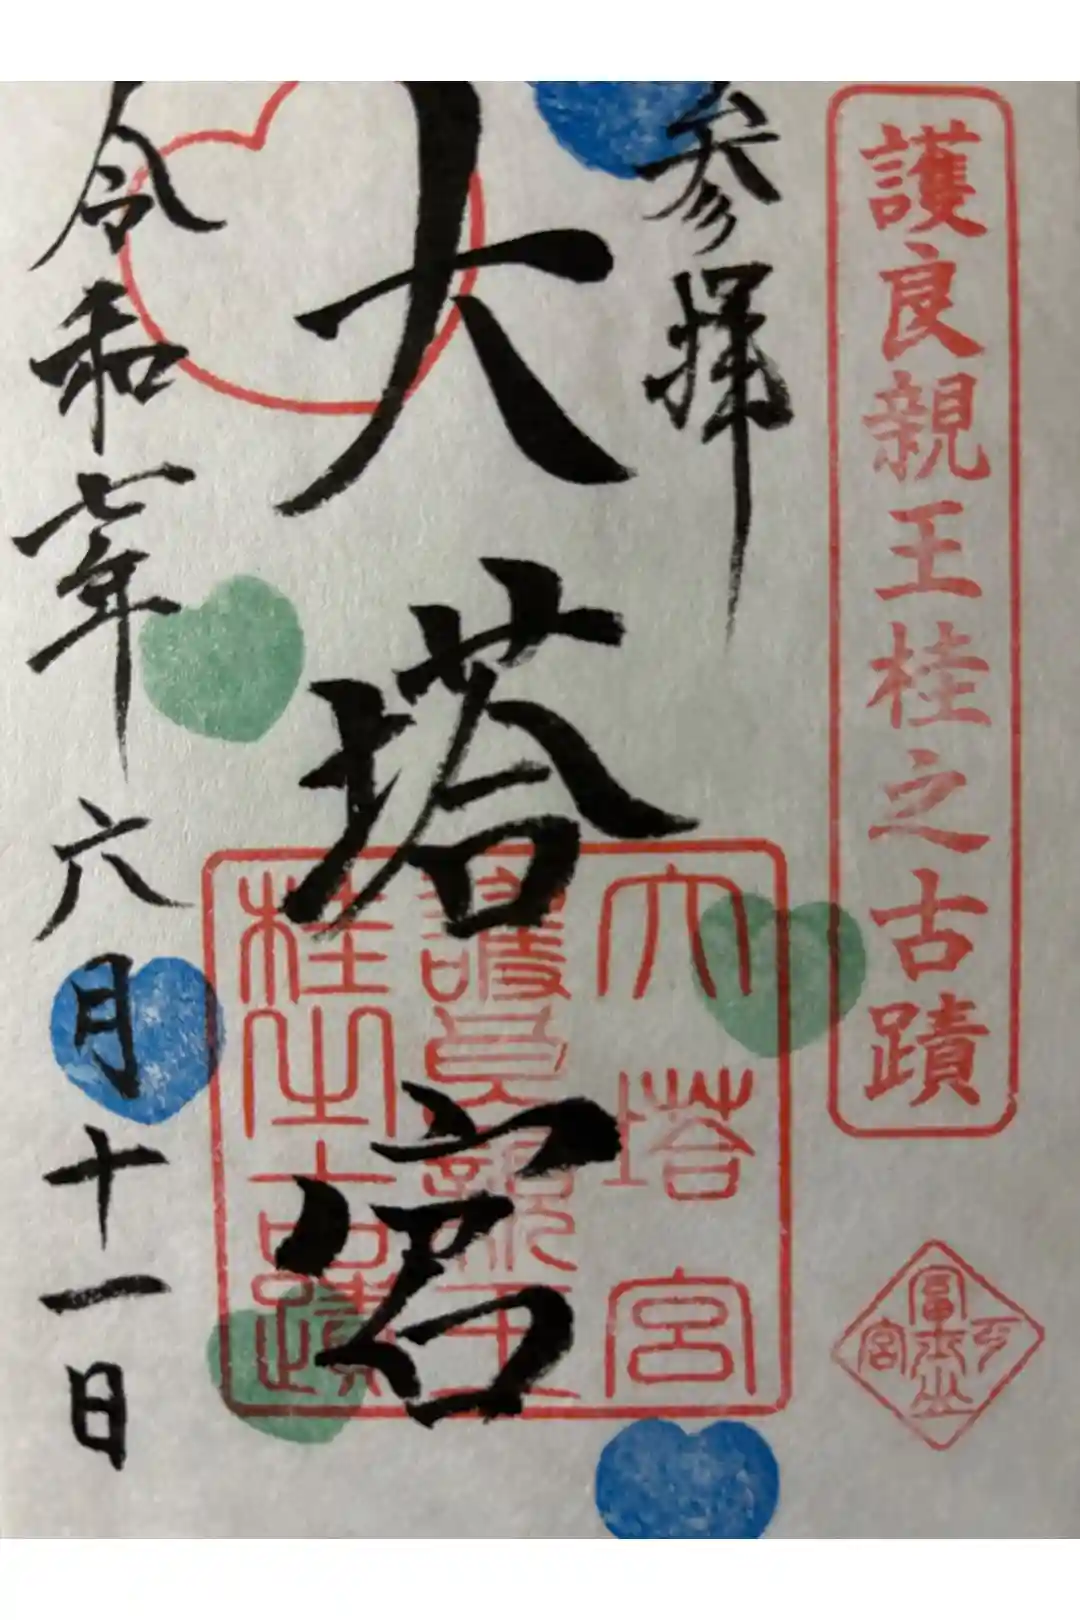 護良親王桂之古蹟
参拝
大塔宮
令和七年六月十一日
大塔宮
護良親王
桂之古蹟